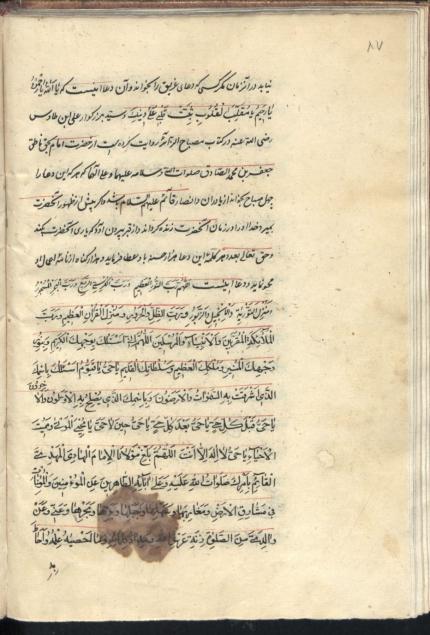 ۸۷
نیابد در آنزمان مگر کسی که دعای غریق را بخواند و آن دعا اینست که یا الله یا رحمن
یا رحیم یا مقلب القلوب ثبت قلبی علی دینک و سید بزرکوار علی ابن طاوس
رضی الله عنه در کتاب مصباح الزائر روایت کرده است از حضرت امام بحق ناطق
جعفر بن محمد الصادق صلوات الله و سلامه علیهما و علی آبائهما که هر که این دعا را
چهل صباح بخواند از یاوران و انصار قائم علیهم السلام باشد و کر پیش از ظهور آنحضرت
بمیرد خدا او را در زمان آنحضرت زنده کرداند و از قبر بیرون آورد که یاری آنحضرت کند
و حق تعالی بعدد هر کلمه این دعا هزار حسنه باو عطا فرماید و هزار کناه از نامه اعمال او
محو نماید و دعا اینست اللهم رب النور العظیم و رب الکرسی الرفیع و رب البحر المسجور
و منزل التوریة والانجیل والزبور و رب الظل والحرور و منزل القرآن العظیم و رب
الملائکة المقربین والانبیاء والمرسلین اللهم انی اسئلک بوجهک الکریم و بنور
وجهک المنیر و ملکک القدیم یا حی یا قیوم اسئلک باسمک
الذی اشرقت به السموات والارضون و باسمک الذی یصلح به الاولون والآخرون
یا حی قبل کل حی یا حی بعد کل حی یا حی حین لا حی یا محیی الموتی و ممیت
الاحیاء یا حی لا اله الا انت اللهم بلغ مولانا الامام الهادی المهدی
القائم بامرک صلوات الله علیه و علی آبائه الطاهرین عن المؤمنین والمؤمنات
فی مشارق الارض و مغاربها و سهلها و جبلها و برها و بحرها و عنی و عن
والدی من الصلوة زنة عرش الله و مداد کلماته و ما احصیه علمه و احاط